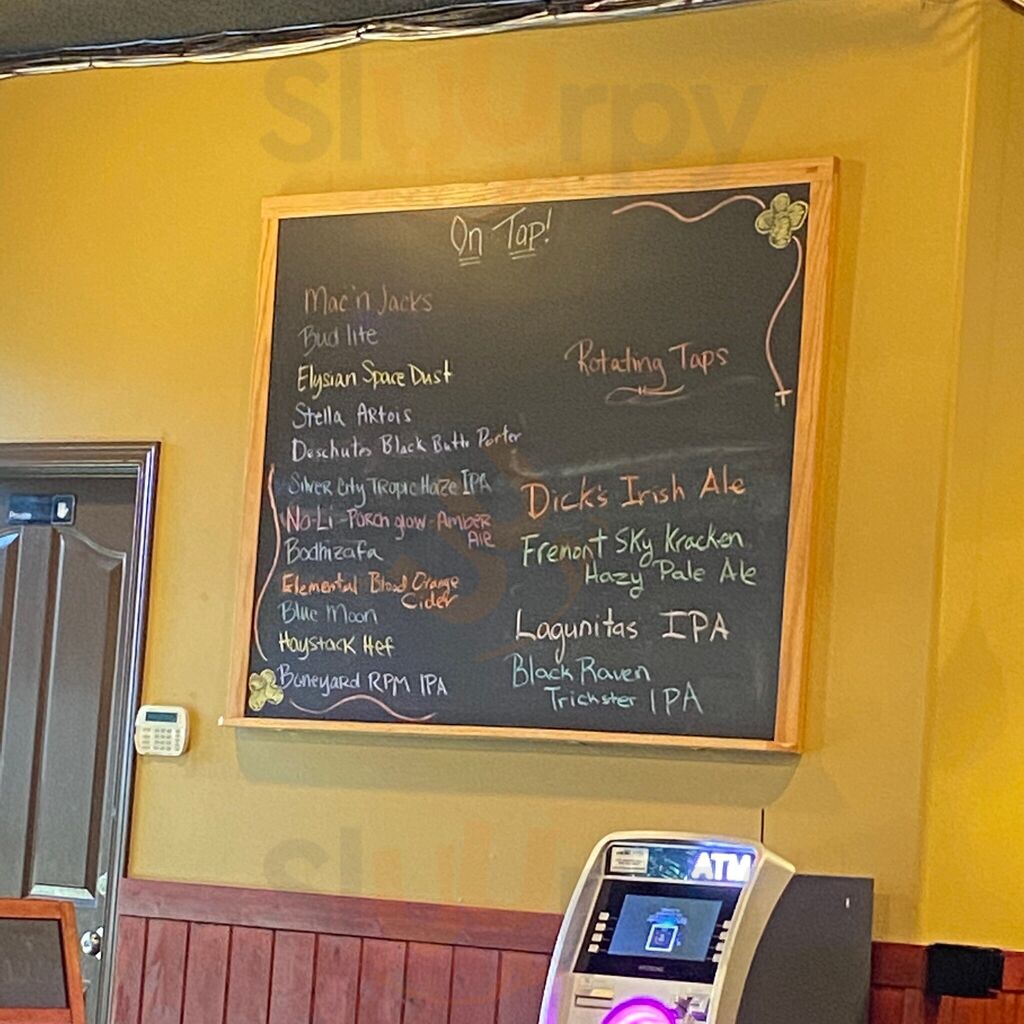 Sluurpy
On Tap!
Mac'n Jacks
Bud lite
Elysian Space Dust
Stella Artois
Deschutes Black Butte Porter
Silver City Tropic Haze IPA
No-Li-Porch glow-Amber
Ale
Bodhizafa
Elemental Blood Orange
Cider
Blue Moon
Haystack Hef
Boneyard RPM IPA
Rotating Taps
Dick's Irish Ale
Fremont Sky Kracken
Hazy Pale Ale
Lagunitas IPA
Black Raven
Trickster IPA
Private
ATM